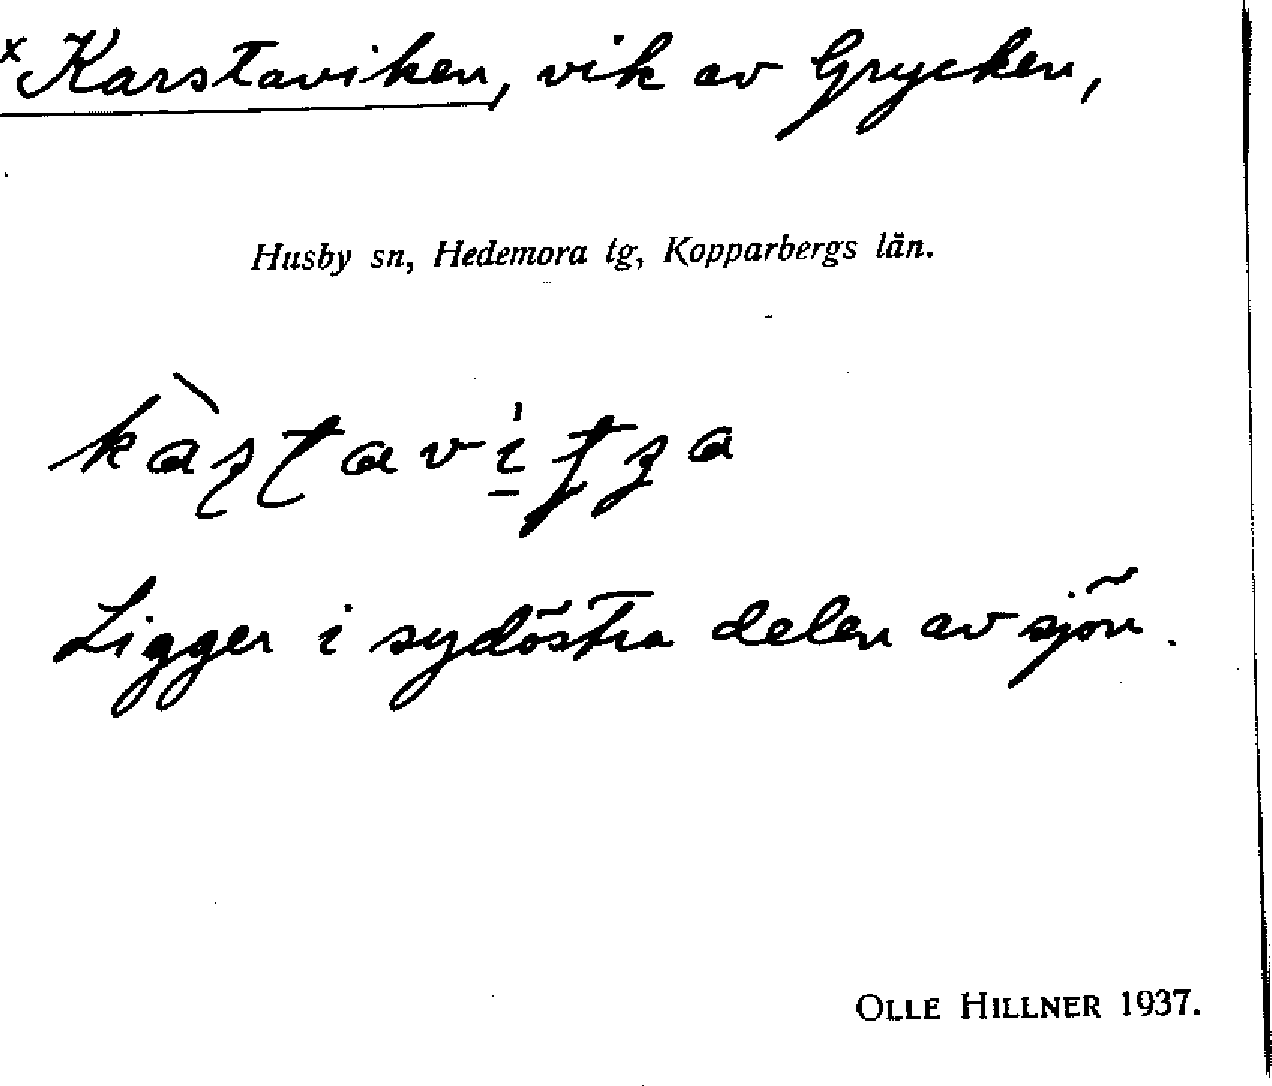 x Karstaviken, vik av Grycken,
Husby sn, Hedemora tg, Kopparbergs län.
Ligger i sydöstra delen av sjön.
OLLE HILLNER 1937.